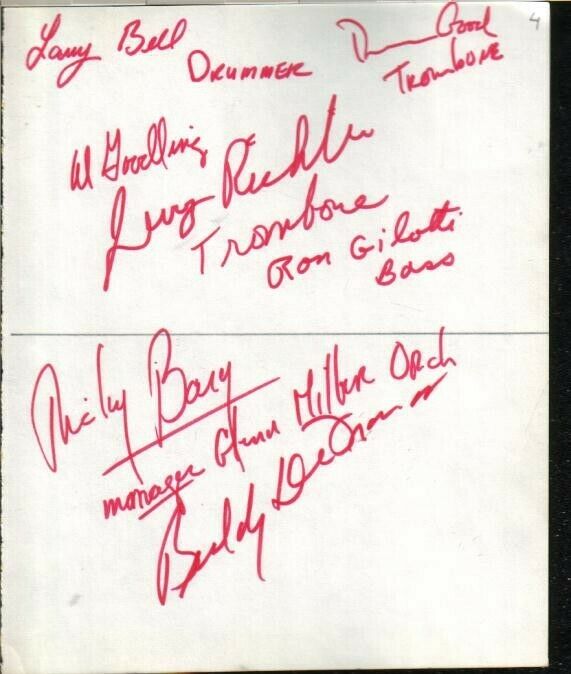 Larry Bell
Drummer
Good
Trombone
4
Al Goodling
Trombone
Ron Gilotti
Bass
Micky Bary
manager Glenn Miller Orch
Buddy DeFranco